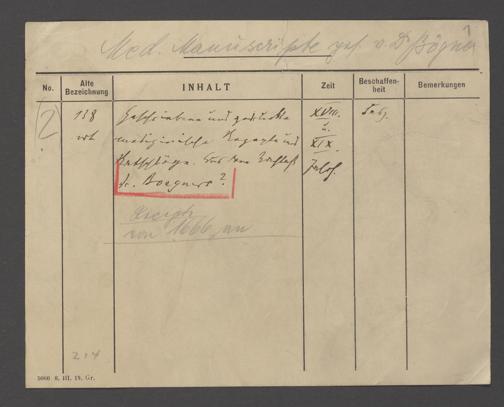 1
Med. Manuscripte ges. v. Dr Bögner
No.
Alte Bezeichnung
INHALT
Zeit
Beschaffen-
heit
Bemerkungen
2
118
Geschriebene und gedruckte
medizinische Rezepte und
Ratschläge. Aus dem Nachlaß
Dr. Boegners?
XVIII.
u.
XIX.
Jahrh.
Rezepte
von 1666 an
214
5000 6. III. 19. Gr.